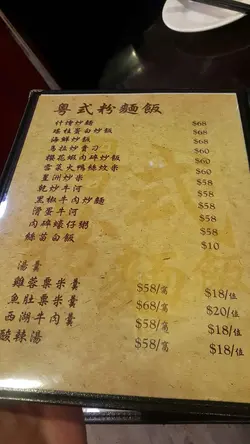 粵式粉麵飯
什燴炒麵 $68
瑤柱蛋白炒飯 $68
海鮮炒飯 $68
烏拉炒賣刀 $60
櫻花蝦肉碎炒飯 $60
雪菜火鴨絲炆米 $60
星洲炒米 $58
乾炒牛河 $58
黑椒牛肉炒麵 $58
滑蛋牛河 $58
肉碎蠔仔粥 $58
絲苗白飯 $10
湯羹
雞蓉粟米羹 $58/窩 $18/位
魚肚粟米羹 $68/窩 $20/位
西湖牛肉羹 $58/窩 $18/位
酸辣湯 $58/窩 $18/位